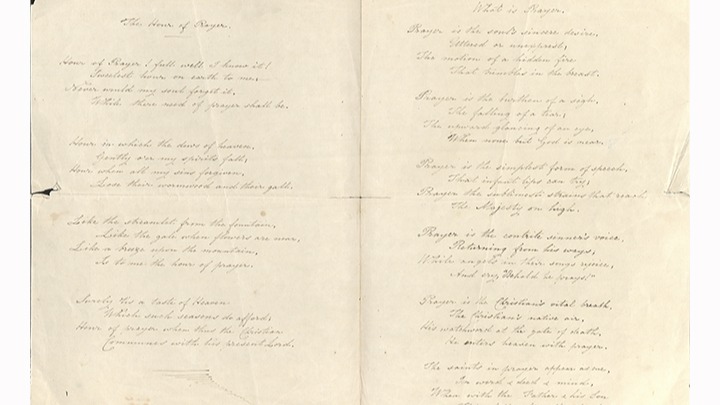 The Hour of Prayer.
Hour of Prayer! full well I know it!
Sweetest hour on earth to me.
Never would my soul forget it,
While there need of prayer shall be.
Hour in which the dews of heaven,
Gently on my spirits fall,
Hour when all my sins forgiven,
Lose their wormwood and their gall.
Like the streamlet from the fountain,
Like the gale when flowers are near,
Like a breeze upon the mountain,
Is to me the hour of prayer.
Surely 'tis a taste of Heaven
Which such seasons do afford,
Hour of prayer when thus the Christian
Communes with his present Lord.
What is Prayer.
Prayer is the soul's sincere desire,
Uttered or unexprest,
The motion of a hidden fire
That trembles in the breast.
Prayer is the burthen of a sigh,
The falling of a tear,
The upward glancing of an eye,
When none but God is near.
Prayer is the simplest form of speech,
That infant lips can try,
Prayer the sublimest strains that reach
The Majesty on high.
Prayer is the contrite sinner's voice,
Returning from his ways,
While angels in their songs rejoice,
And cry "Behold he prays!"
Prayer is the Christian's vital breath,
The Christian's native air,
His watchword at the gate of death,
He enters heaven with prayer.
The saints in prayer appear as one,
In word & deed & mind,
When with the Father & his Son